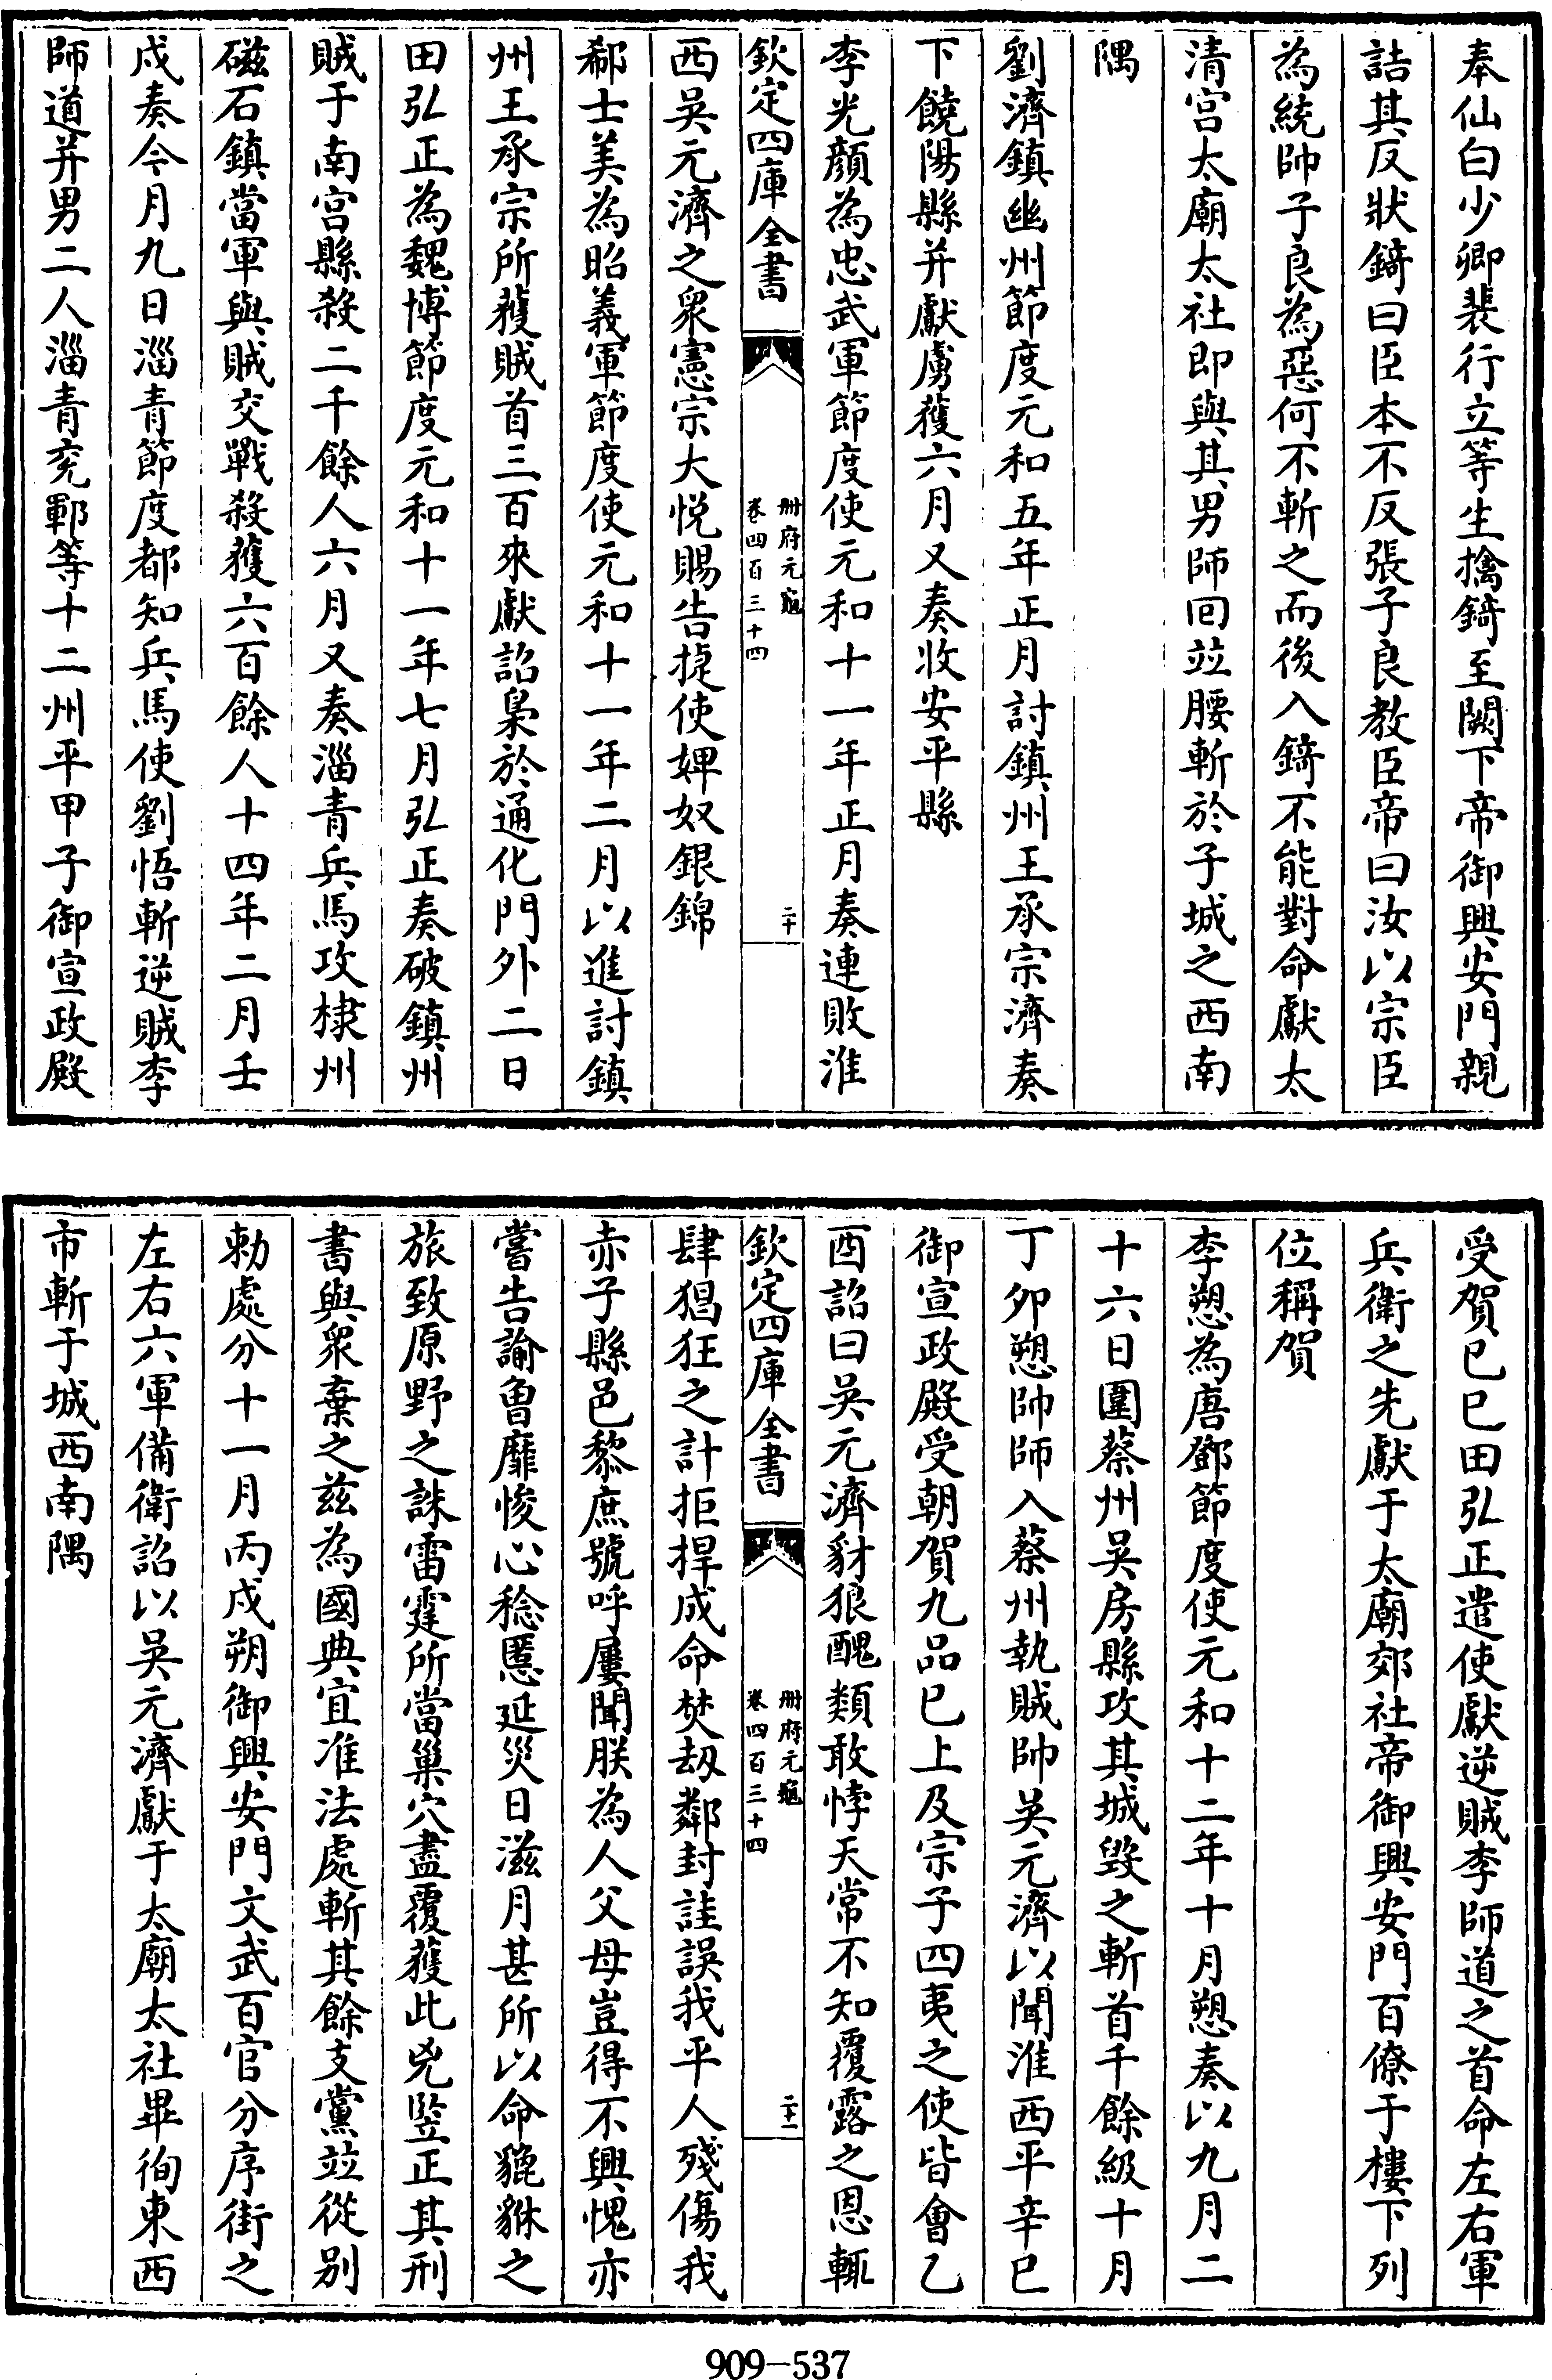 奉仙白少卿裴行立等生擒錡至闕下帝御興安門親
詰其反狀錡曰臣本不反張子良教臣帝曰汝以宗臣
為統帥子良為惡何不斬之而後入錡不能對命獻太
清宫太廟太社即與其男師回竝腰斬於子城之西南
隅
劉濟鎮幽州節度元和五年正月討鎮州王承宗濟奏
下饒陽縣并獻虜獲六月又奏收安平縣
李光顔為忠武軍節度使元和十一年正月奏連敗淮
欽定四庫全書
册府元龜
卷四百三十四
二十
西吳元濟之衆憲宗大悦賜告捷使婢奴銀錦
郗士美為昭義軍節度使元和十一年二月以進討鎮
州王承宗所獲賊首三百來獻詔梟於通化門外二日
田弘正為魏博節度元和十一年七月弘正奏破鎮州
賊于南宫縣殺二千餘人六月又奏淄青兵馬攻棣州
磁石鎮當軍與賊交戰殺獲六百餘人十四年二月壬
戍奏今月九日淄青節度都知兵馬使劉悟斬逆賊李
師道并男二人淄青兖鄆等十二州平甲子御宣政殿
受賀已巳田弘正遣使獻逆賊李師道之首命左右軍
兵衛之先獻于太廟郊社帝御興安門百僚于樓下列
位稱賀
李愬為唐鄧節度使元和十二年十月愬奏以九月二
十六日圍蔡州吳房縣攻其城毁之斬首千餘級十月
丁夘愬帥師入蔡州執賊帥吳元濟以聞淮西平辛巳
御宣政殿受朝賀九品已上及宗子四夷之使皆會乙
酉詔曰吳元濟豺狼醜類敢悖天常不知覆露之恩輒
欽定四庫全書
册府元龜
卷四百三十四
二十一
肆猖狂之計拒捍成命焚刼鄰封詿誤我平人殘傷我
赤子縣邑黎庶號呼屢聞朕為人父母豈得不興愧亦
嘗告諭曾靡悛心稔慝延災日滋月甚所以命貔貅之
旅致原野之誅雷霆所當巢穴盡覆獲此兇竪正其刑
書與衆棄之兹為國典宜准法處斬其餘支黨竝從别
勅處分十一月丙戍朔御興安門文武百官分序街之
左右六軍備衛詔以吳元濟獻于太廟太社畢徇東西
市斬于城西南隅
909-537